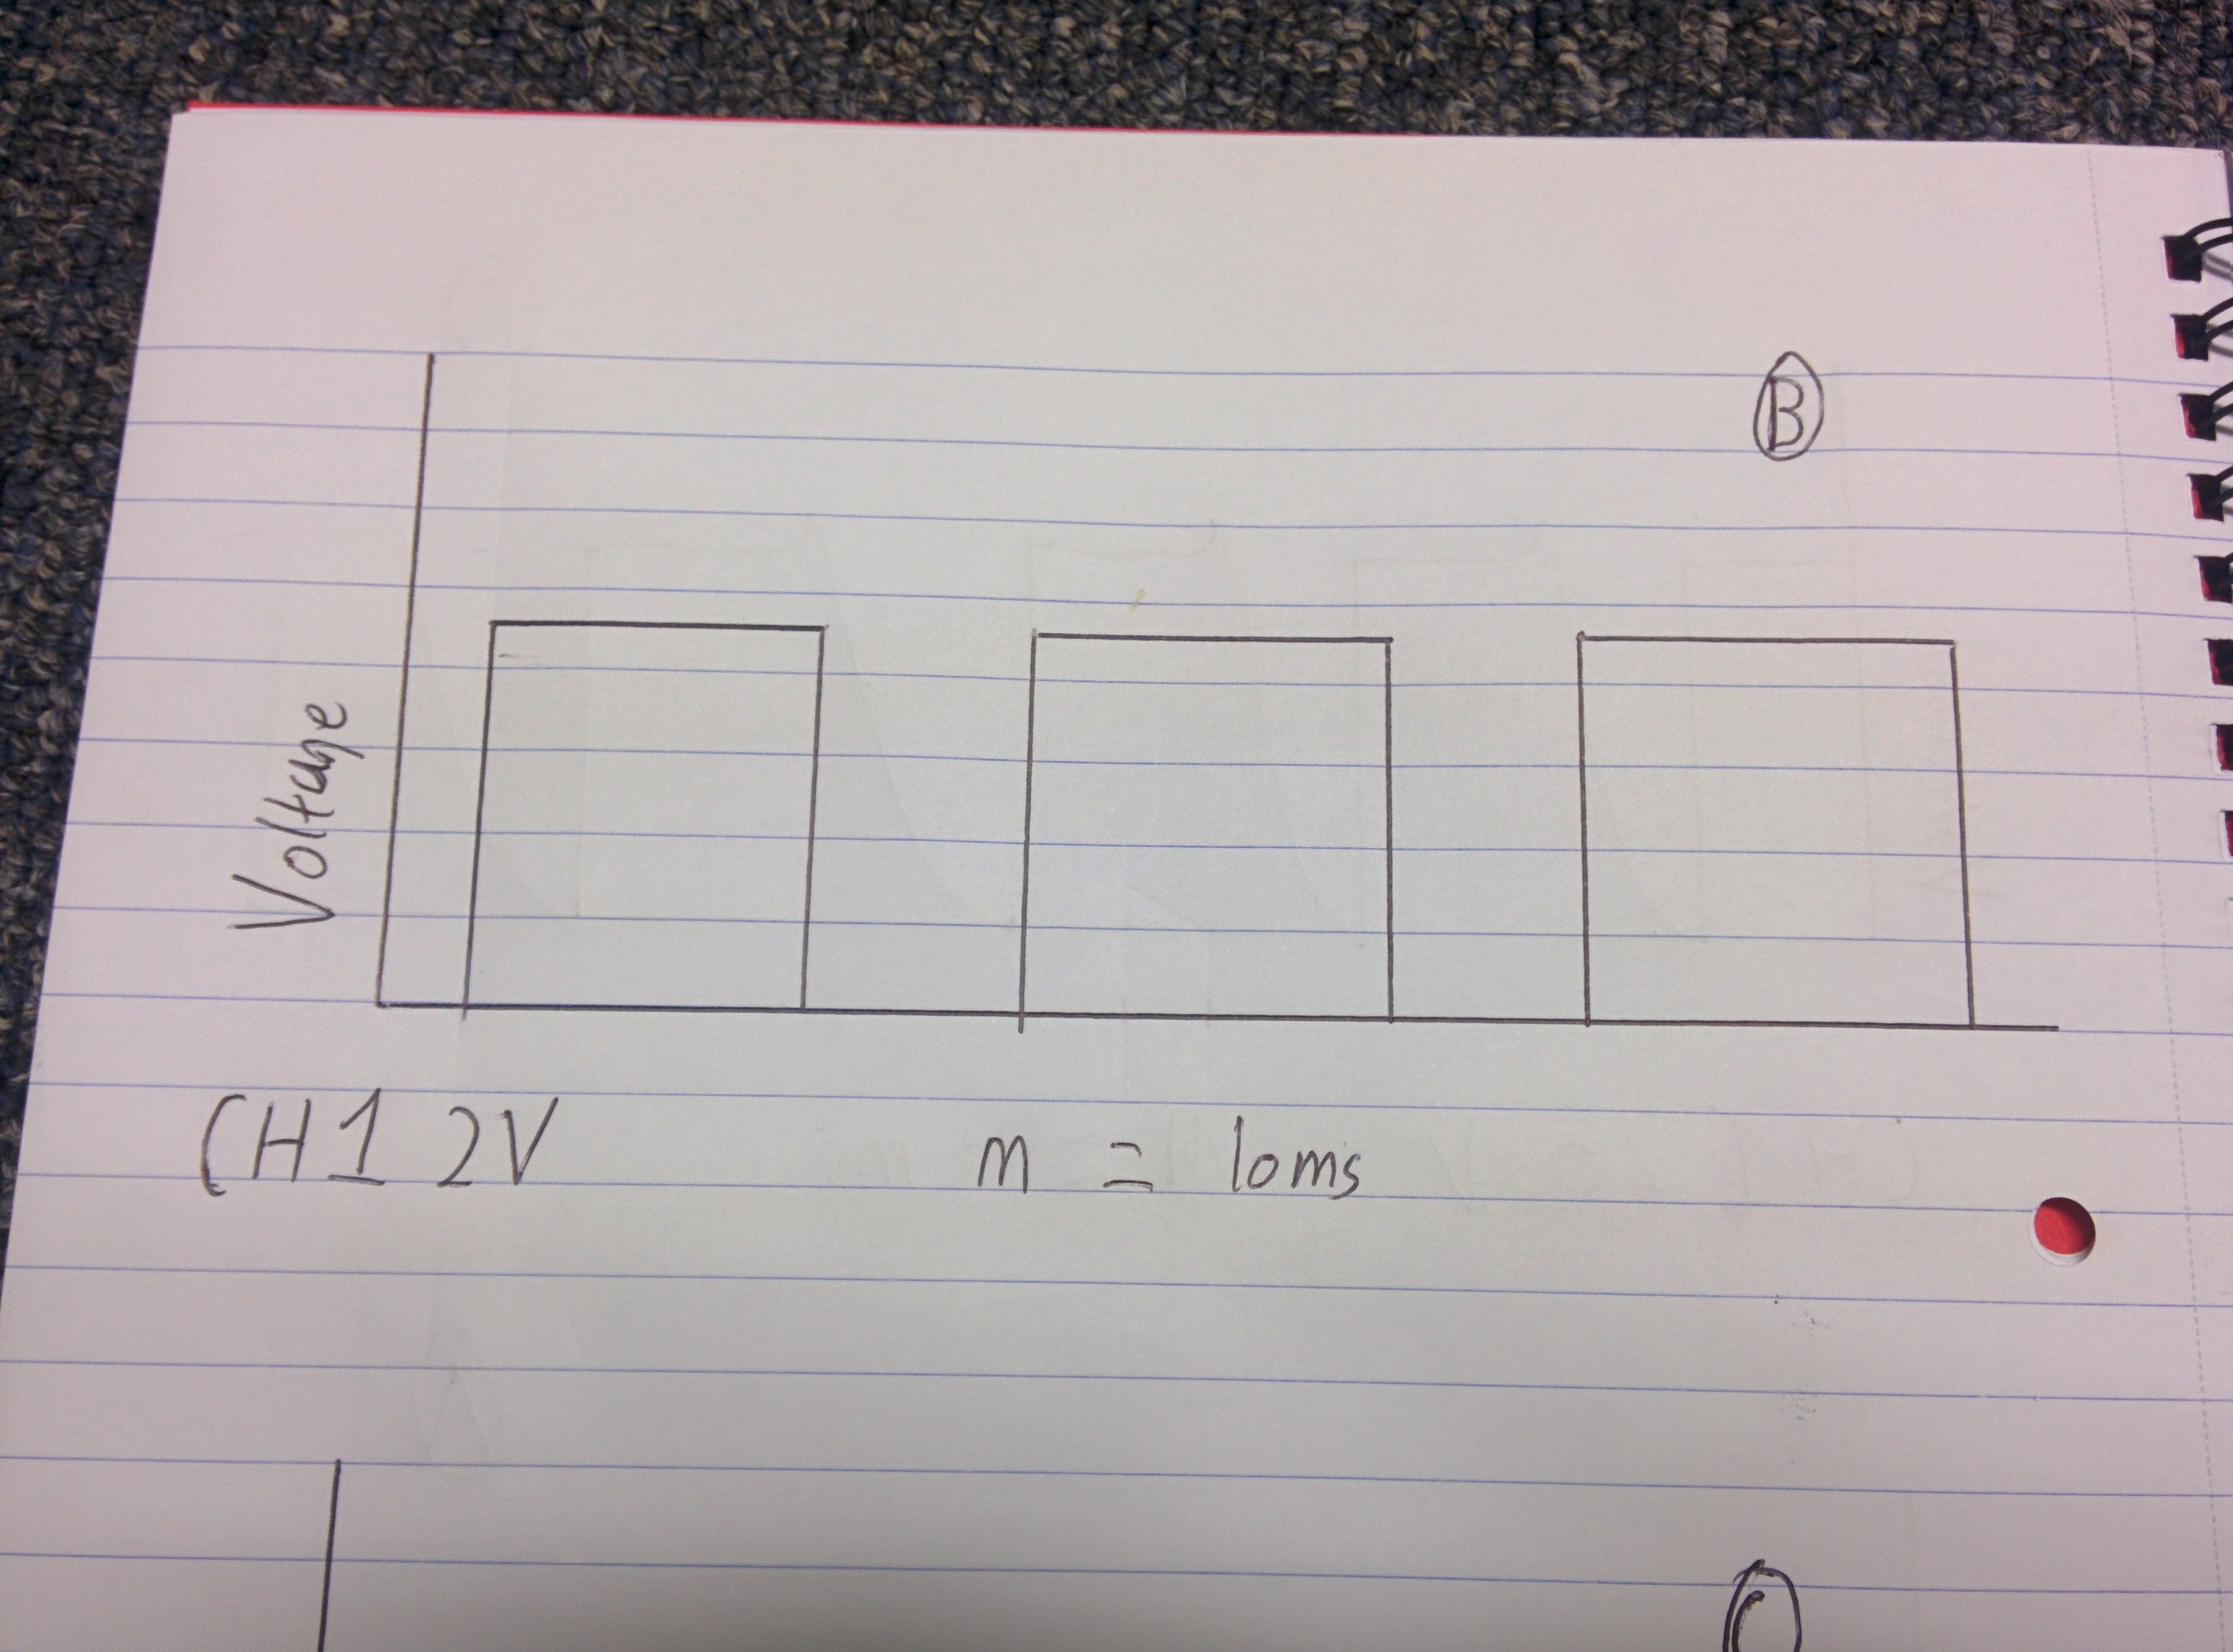 B
Voltage
CH1 2V
m = 10ms
C